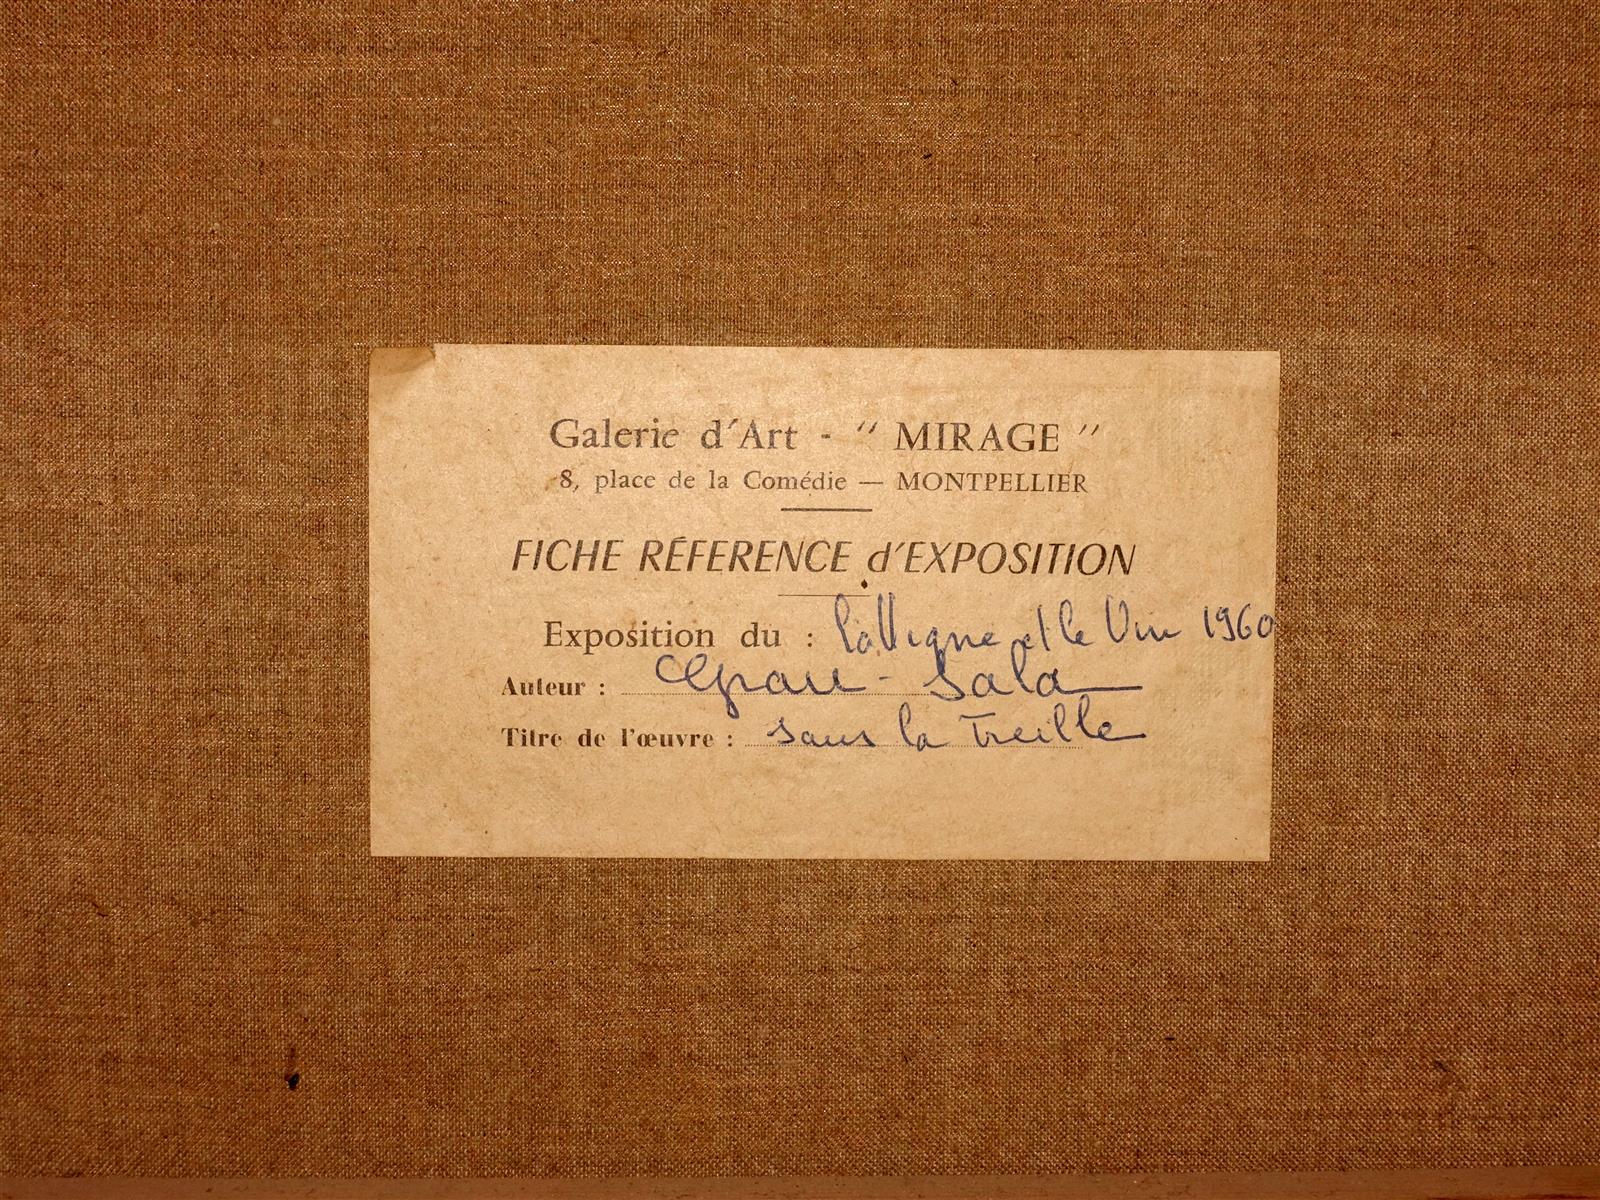 Galerie d'Art - " MIRAGE "
8, place de la Comédie — MONTPELLIER
FICHE RÉFERENCE d'EXPOSITION
Exposition du : la Vigne et le Vin 1960
Auteur : Grau-Sala
Titre de l'œuvre : sous la Treille